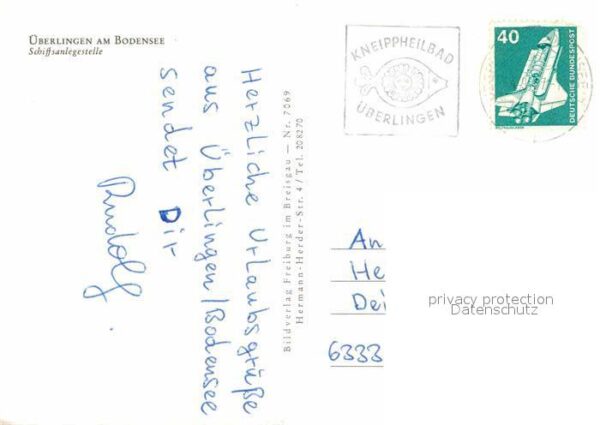 ÜBERLINGEN AM BODENSEE
Schiffsanlegestelle
Herzliche Urlaubsgrüße
aus Überlingen/Bodensee
sendet Dir
Rudolf.
Bildverlag Freiburg im Breisgau — Nr. 7069
Hermann-Herder-Str. 4 / Tel. 208270
KNEIPPHEILBAD
ÜBERLINGEN
40
DEUTSCHE BUNDESPOST
An
He
Dei
6333
privacy protection
Datenschutz